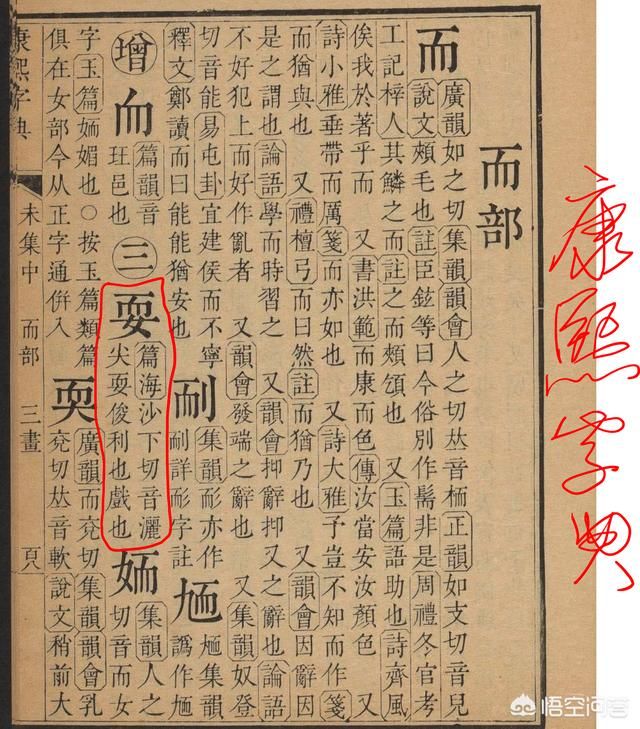 康熙字典
而部
而
廣韻如之切集韻韻會人之切𠀤音栭正韻如支切音兒
說文頰毛也註臣鉉等曰今俗別作髵非是周禮冬官考
工記梓人其鱗之而註之而頰頷也 又玉篇語助也詩齊風
俟我於著乎而 又書洪範而康而色傳汝當安汝顏色 又
詩小雅垂帶而厲箋而亦如也 又詩大雅子豈不知而作箋
而猶與也 又禮檀弓而曰然註而猶乃也 又韻會因辭因
是之謂也論語學而時習之 又韻會抑辭抑又之辭也論語
不好犯上而好作亂者 又韻會發端之辭也 又集韻奴登
切音能易屯卦宜建侯而不寧
釋文鄭讀而曰能能猶安也
集韻耏亦作
詳耏字註
集韻
譌作
增
篇韻音
邑也
三
耍
篇海沙下切音灑
尖耍俊利也戲也
集韻人之
切音而女
字玉篇 媚也○按玉篇類篇
俱在女部今从正字通倂入
耎
廣韻而兗切集韻韻會乳
兗切𠀤音軟說文稍前大
康熙字典
未集中 而部 三畫
頁
悟空问答